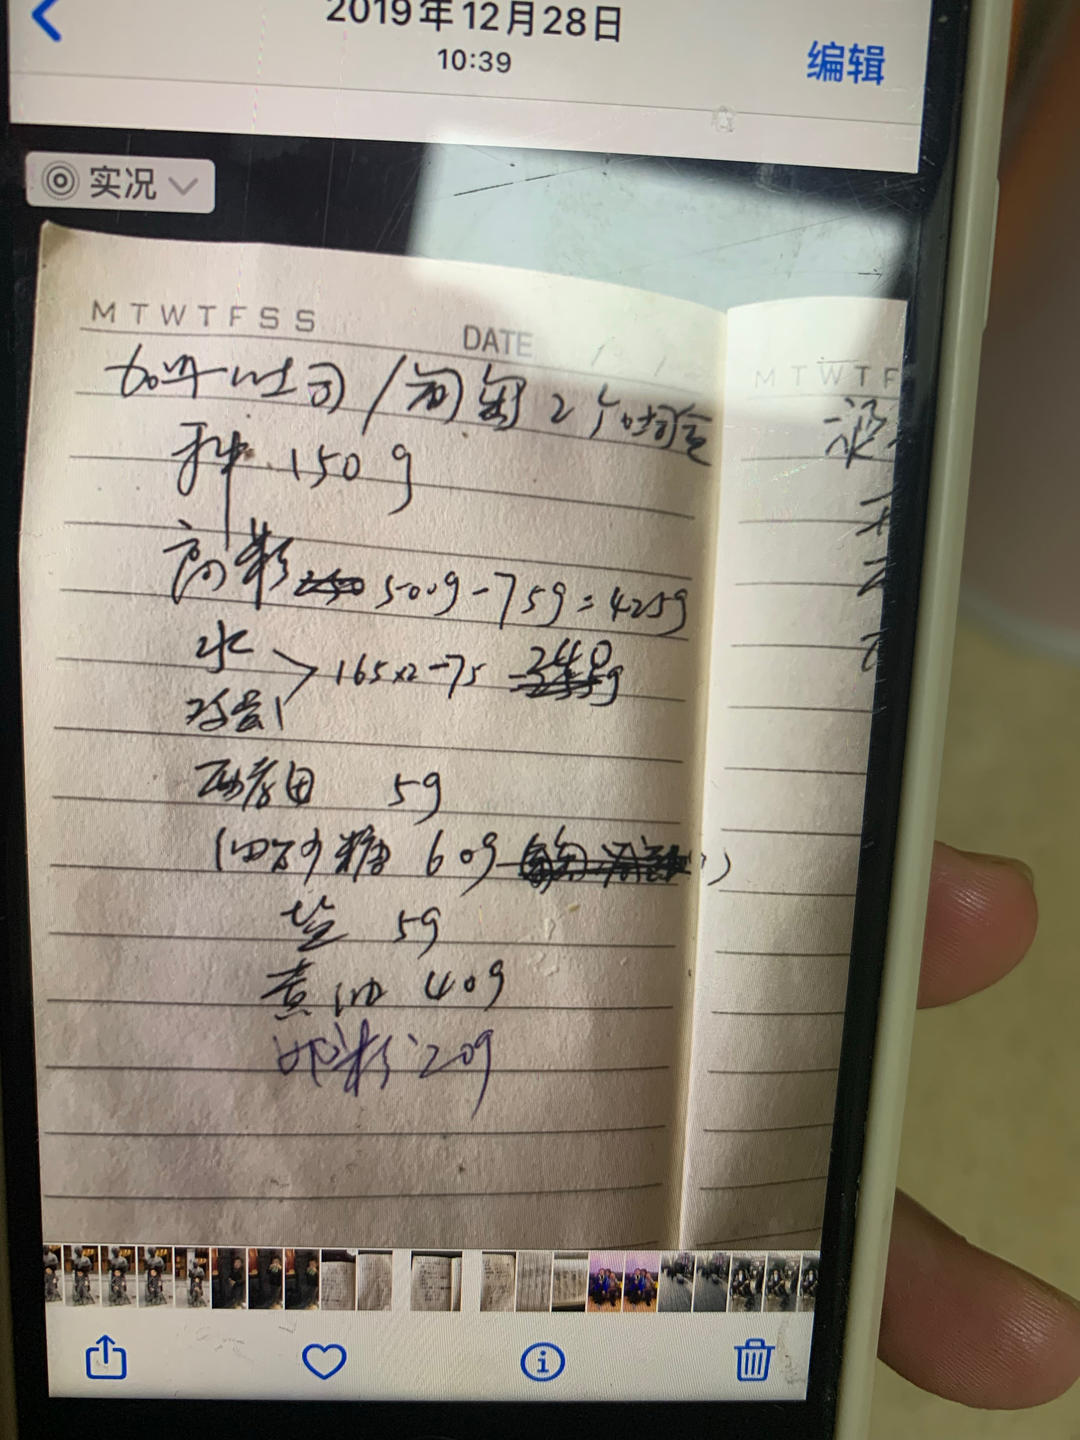 2019年12月28日
10:39
编辑
实况
M T W T F S S
DATE
吐司/ 2个吐司盒
M T W T F
种 150g
高粉 500g-75g=425g
水 165x2-75 240g
鸡蛋1
酵母 5g
糖 60g
盐 5g
黄油 40g
奶粉 20g